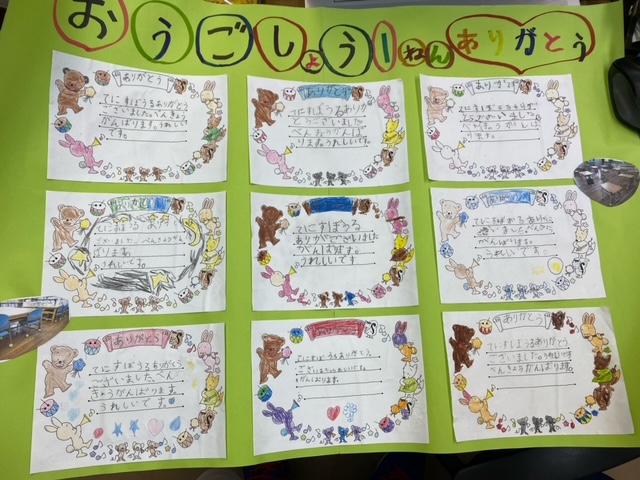 おうごしょう1ねんありがとう
ありがとう
てにすぼうるありがとう
ございました。べんきょう
がんばります。うれしい
です。
ありがとう
てにすぼうるありが
とうございました
べんきょうがんば
ります。うれしいです。
ありがとう
てにすぼうる
ります。
てにすぼうる あり
ございました。べんきょうがん
ばります。
うれしいです。
てにすぼうる
ありがとうございました
がんばります。
うれしいです
てにすぼうるありがとう
ございました。べんきょう
がんばります。
うれしいです。
ありがとう
てにすぼうるありがとう
ございました。べん
きょうがんばります。
うれしいです。
てにすぼうるありがとう
ございました。
がんばります。
ありがとう
てにすぼうるありがとう
ございました。うれしいです
べんきょうがんばります。